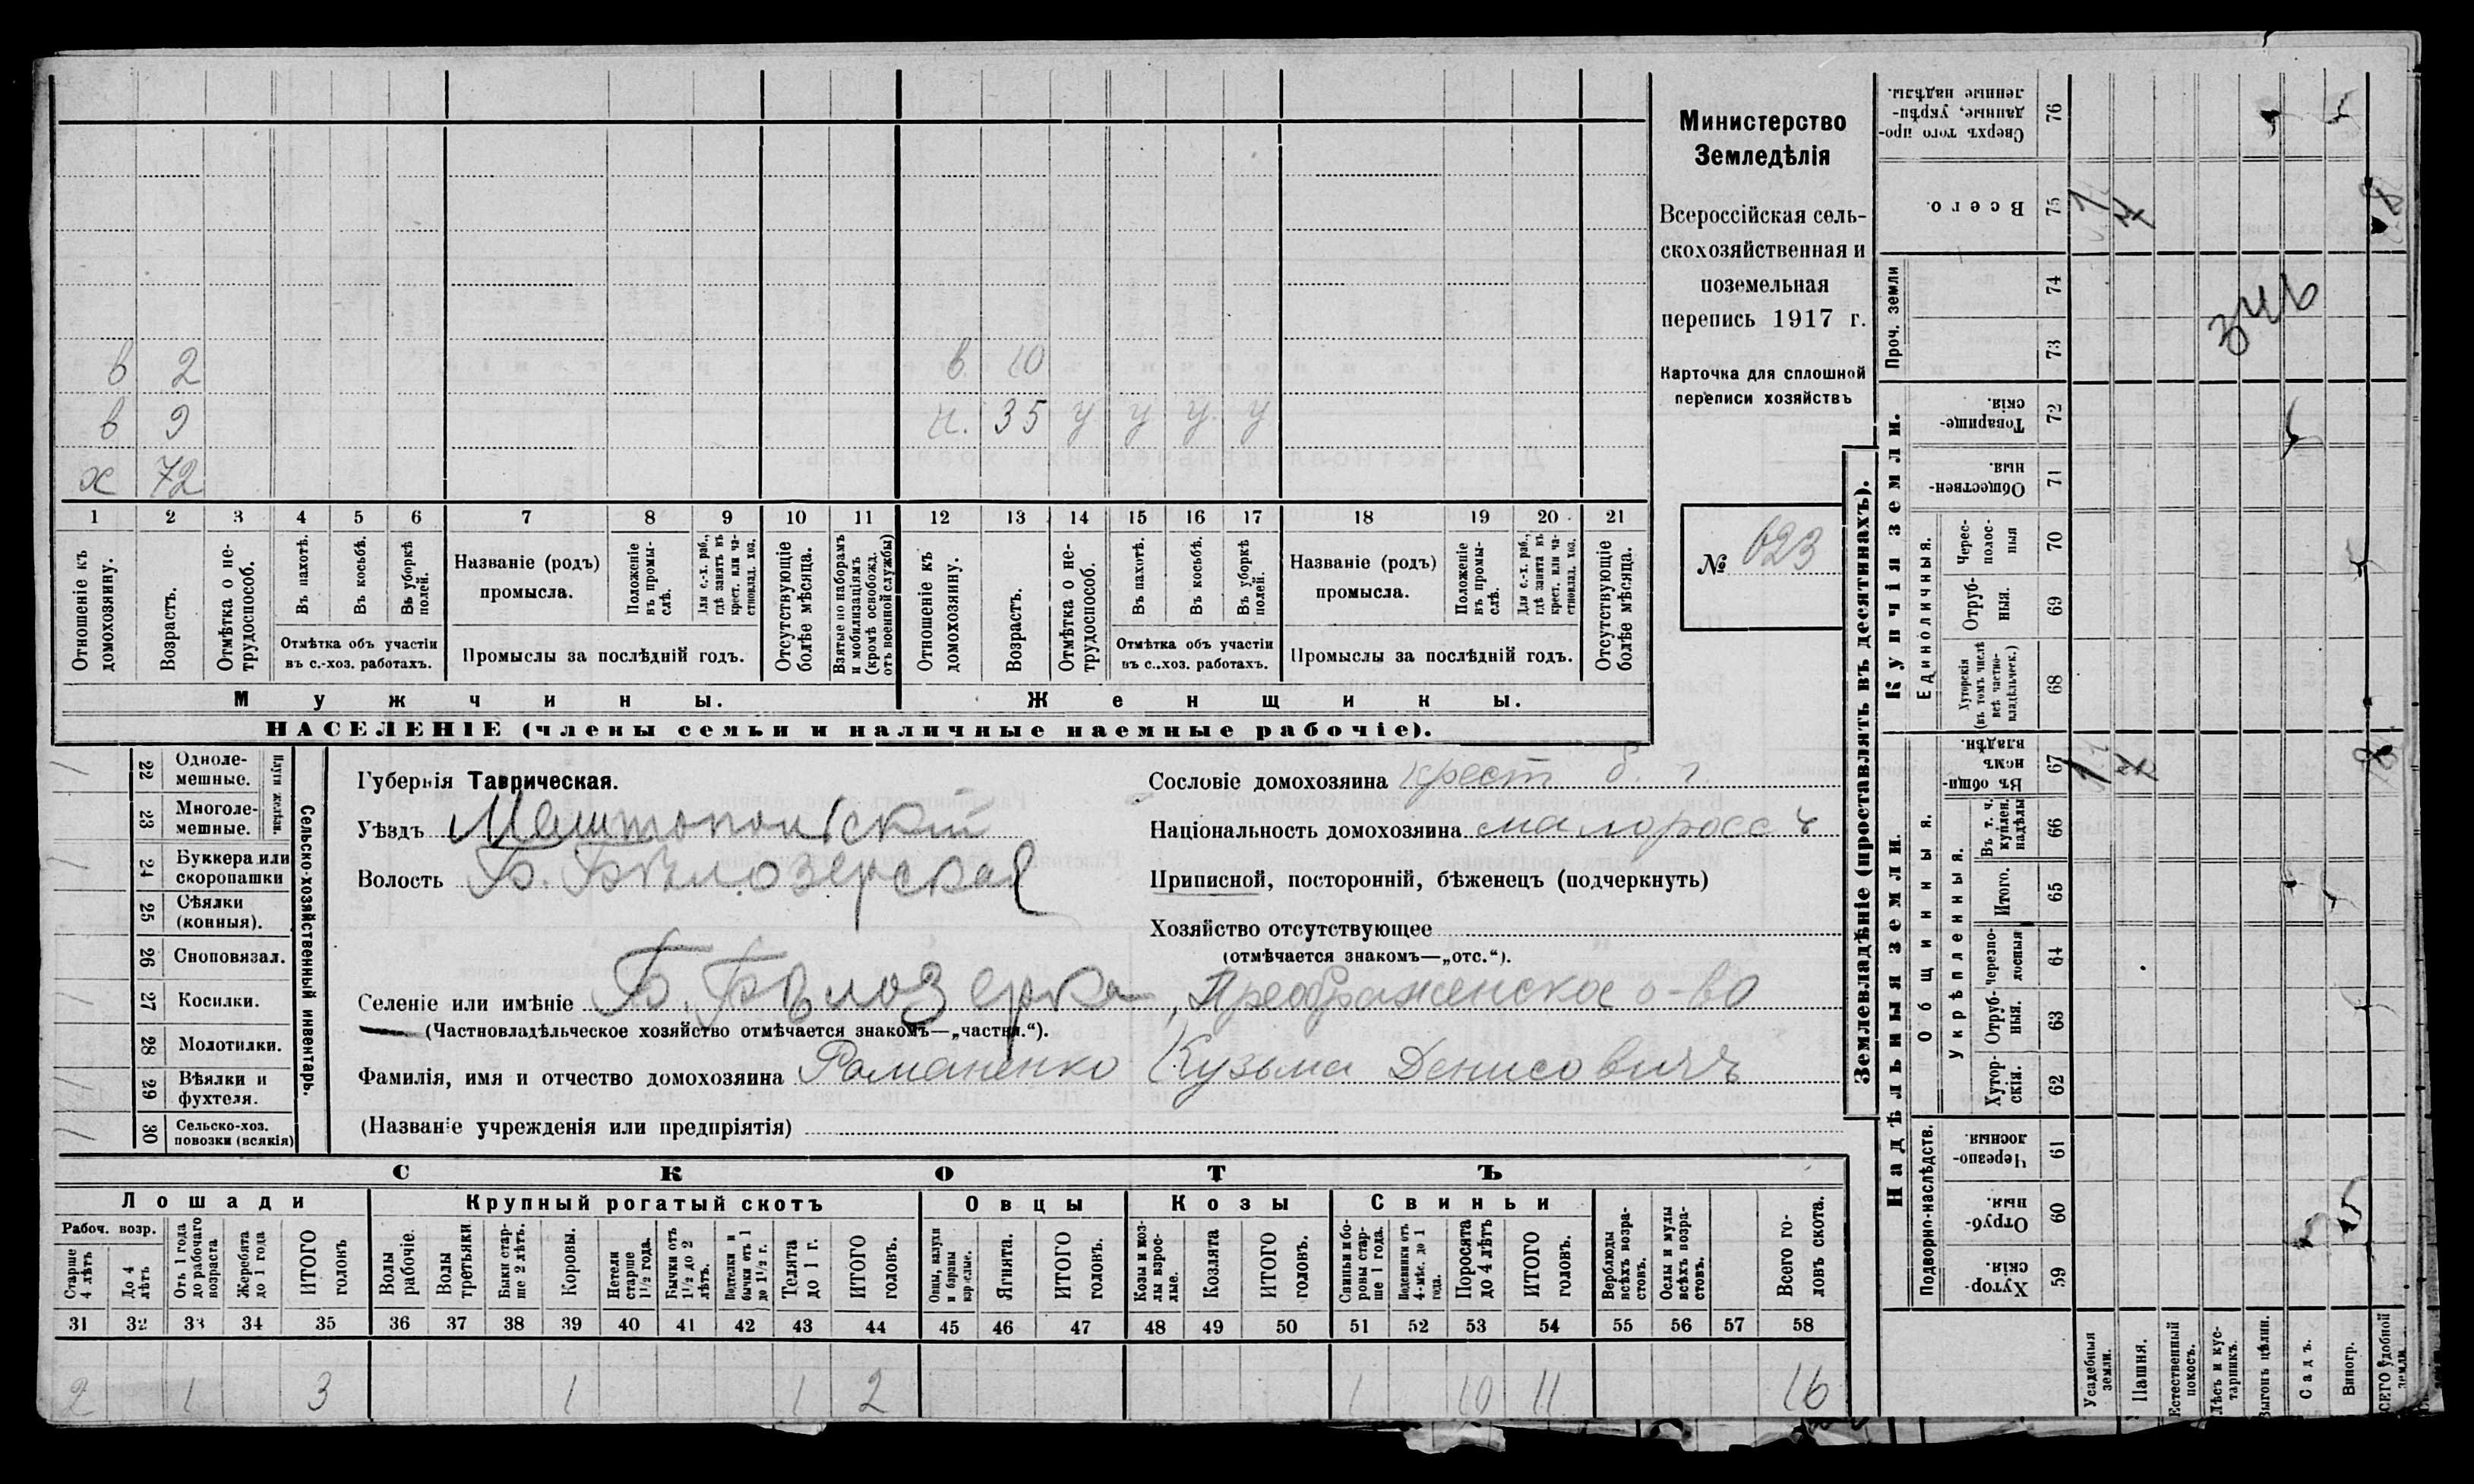 в 2 в 10
в 9 ч. 35 у у у у
х 72
1 2 3 4 5 6 7 8 9 10 11 12 13 14 15 16 17 18 19 20 21
Отношеніе къ домохозяину.
Возрастъ.
Отмѣтка о не-трудоспособ.
Въ пахотѣ.
Въ косьбѣ.
Въ уборкѣ полей.
Отмѣтка объ участіи
въ с.-хоз. работахъ.
Названіе (родъ)
промысла.
Положеніе въ промы-слѣ.
Для с.-х. раб., гдѣ занятъ въ крест. или ча-стновлад. хоз.
Промыслы за послѣдній годъ.
Отсутствующіе болѣе мѣсяца.
Взятые по наборамъ и мобилизаціямъ (кромѣ освобожд. отъ военной службы)
Отношеніе къ домохозяину.
Возрастъ.
Отмѣтка о не-трудоспособ.
Въ пахотѣ.
Въ косьбѣ.
Въ уборкѣ полей.
Отмѣтка объ участіи
въ с..хоз. работахъ.
Названіе (родъ)
промысла.
Положеніе въ промы-слѣ.
Для с.-х. раб., гдѣ занята въ крест. или ча-стновлад. хоз.
Промыслы за послѣдній годъ.
Отсутствующіе болѣе мѣсяца.
Мужчины. Женщины.
НАСЕЛЕНІЕ (члены семьи и наличные наемные рабочіе).
Министерство
Земледѣлія
Всероссійская сель-
скохозяйственная и
поземельная
перепись 1917 г.
Карточка для сплошной
переписи хозяйствъ
№ 623
Плуги желѣзн.
22 Одноле-мешные.
23 Многоле-мешные.
24 Буккера или скоропашки
25 Сѣялки (конныя).
26 Сноповязал.
27 Косилки.
28 Молотилки.
29 Вѣялки и фухтеля.
30 Сельско-хоз. повозки (всякія)
Сельско-хозяйственный инвентарь.
Губернія Таврическая.
Уѣздъ Мелитопольскій
Волость Б. Бѣлозерская
Селеніе или имѣніе Б. Бѣлозерка, Преображенское о-во
(Частновладѣльческое хозяйство отмѣчается знакомъ—„частн.“).
Фамилія, имя и отчество домохозяина Романенко Кузьма Денисовичъ
(Названіе учрежденія или предпріятія)
Сословіе домохозяина крест. б. г.
Національность домохозяина малороссъ
Приписной, посторонній, бѣженецъ (подчеркнуть)
Хозяйство отсутствующее
(отмѣчается знакомъ—„отс.“).
СКОТЪ
Лошади Крупный рогатый скотъ Овцы Козы Свиньи
Рабоч. возр.
Старше 4 лѣтъ
До 4 лѣтъ
Отъ 1 года до рабочаго возраста
Жеребята до 1 года
ИТОГО головъ
Волы рабочіе.
Волы третьяки.
Быки стар-ше 2 лѣтъ.
Коровы.
Нетели старше 1½ года.
Бычки отъ 1½ до 2 лѣтъ.
Подтелки и бычки отъ 1 до 1½ г.
Телята до 1 г.
ИТОГО головъ.
Овцы, валухи и бараны взрослые.
Ягнята.
ИТОГО головъ.
Козы и коз-лы взрос-лые.
Козлята
ИТОГО головъ.
Свиньи и бо-ровы стар-ше 1 года.
Подсвинки отъ 4-мѣс. до 1 года.
Поросята до 4 лѣтъ
ИТОГО головъ.
Верблюды всѣхъ возра-стовъ.
Ослы и мулы всѣхъ возра-стовъ.
Всего го-ловъ скота.
31 32 33 34 35 36 37 38 39 40 41 42 43 44 45 46 47 48 49 50 51 52 53 54 55 56 57 58
2 1 3 1 1 2 1 10 11 16
Землевладѣніе (проставлять въ десятинахъ).
Надѣльныя земли.
Купчія земли.
Проч. земли
Подворно-наслѣдств.
Общинныя.
Укрѣпленныя.
Единоличныя.
59 Хутор-скія.
60 Отруб-ныя.
61 Черезпо-лосныя.
62 Хутор-скія.
63 Отруб-ныя.
64 Черезпо-лосныя
65 Итого.
66 Въ т. ч. куплен. надѣлы
67 Въ общин-номъ владѣн.
68 Хуторскія (въ томъ числѣ всѣ частно-владѣльческ.)
69 Отруб-ныя.
70 Черес-полос-ныя
71 Обществен-ныя.
72 Товарище-скія.
73
74
75 Всего.
76 Сверхъ того про-данные, укрѣп-ленные надѣлы.
Усадебныя земли.
Пашня.
Естественный покосъ.
Лѣсъ и кус-тарникъ.
Выгонъ цѣлин.
Садъ.
Виногр.
ВСЕГО удобной земли.